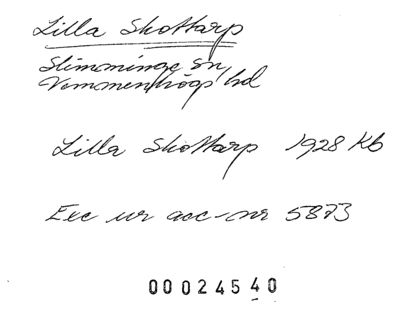 Lilla Skottarp
Slimminge sn,
Vemmenhögs hd
Lilla Skottarp 1928 Kb
Exc ur acc-nr 5873
00024540